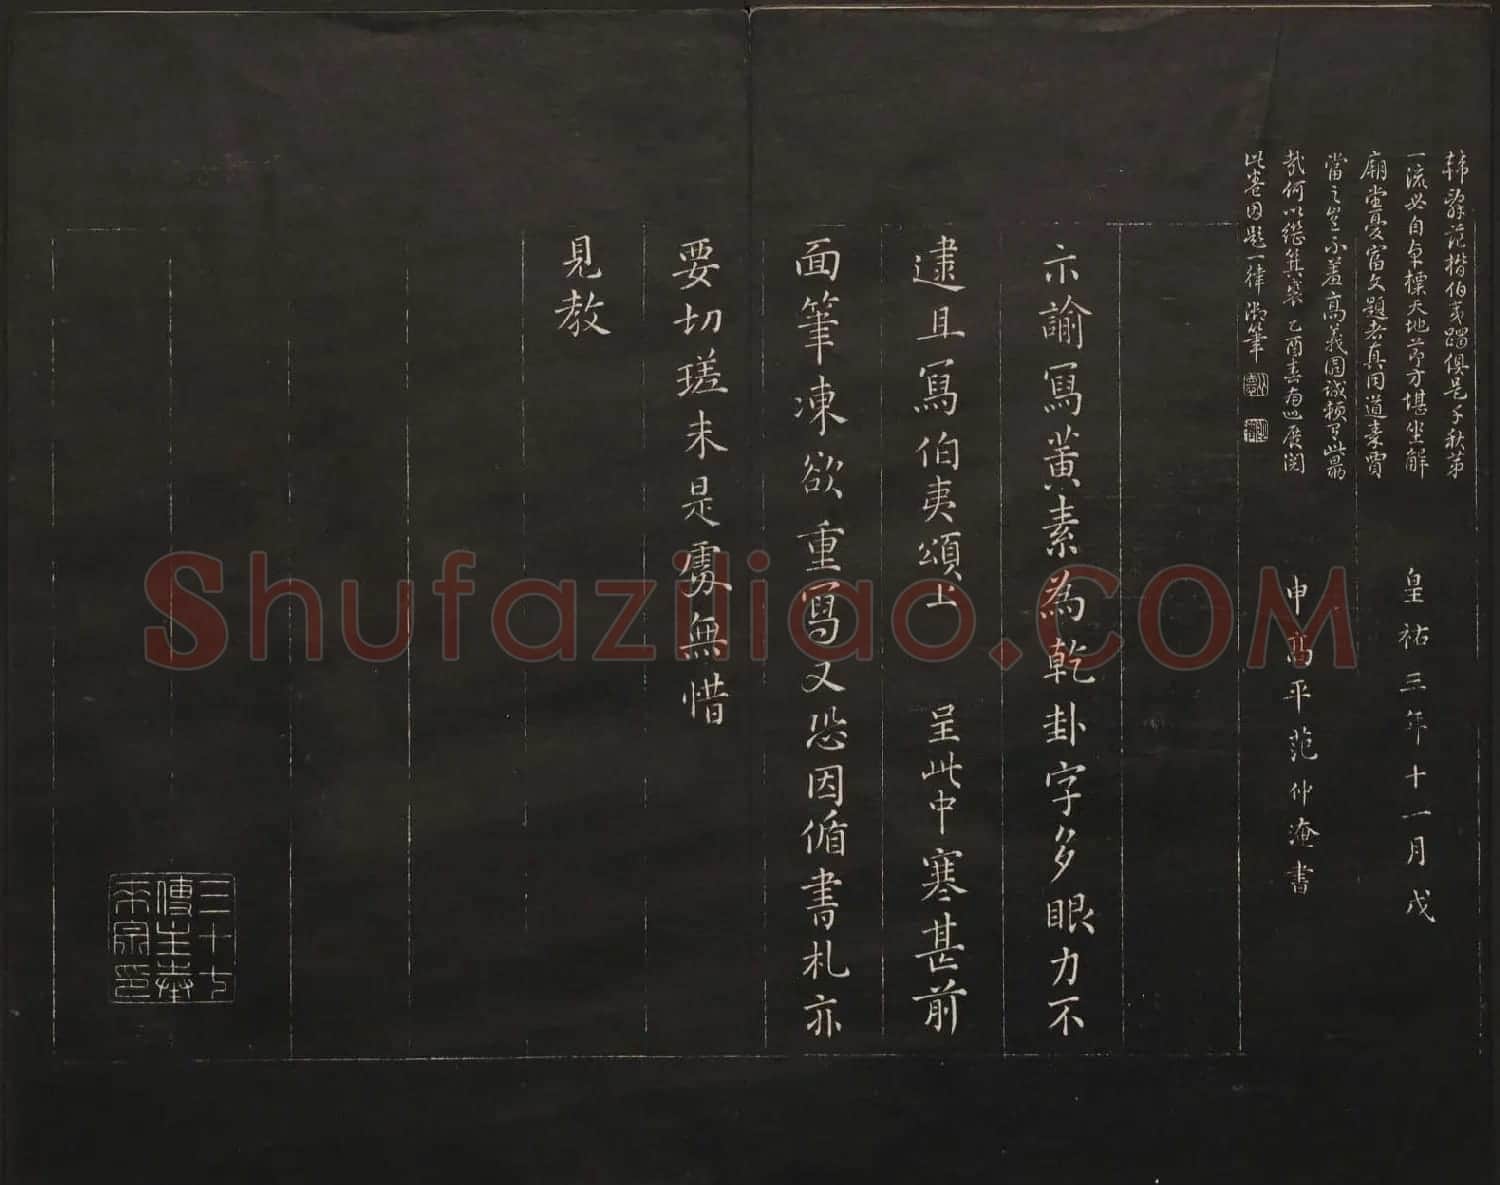 韓辭范楷伯夷躅俱是千秋第
一流必自卓標天地節方堪坐解
廟堂憂富文題者真同道秦賈
當之豈不羞高義園誠賴有此勗
哉何以繼箕裘 乙酉春南巡展閱
此卷因題一律 御筆
皇祐三年十一月戊
申高平范仲淹書
示諭寫黃素為乾卦字多眼力不
逮且寫伯夷頌上 呈此中寒甚前
面筆凍欲重寫又恐因循書札亦
要切瑳未是處無惜
見教
三十七
傳主奉
宗
Shufaziliao.COM